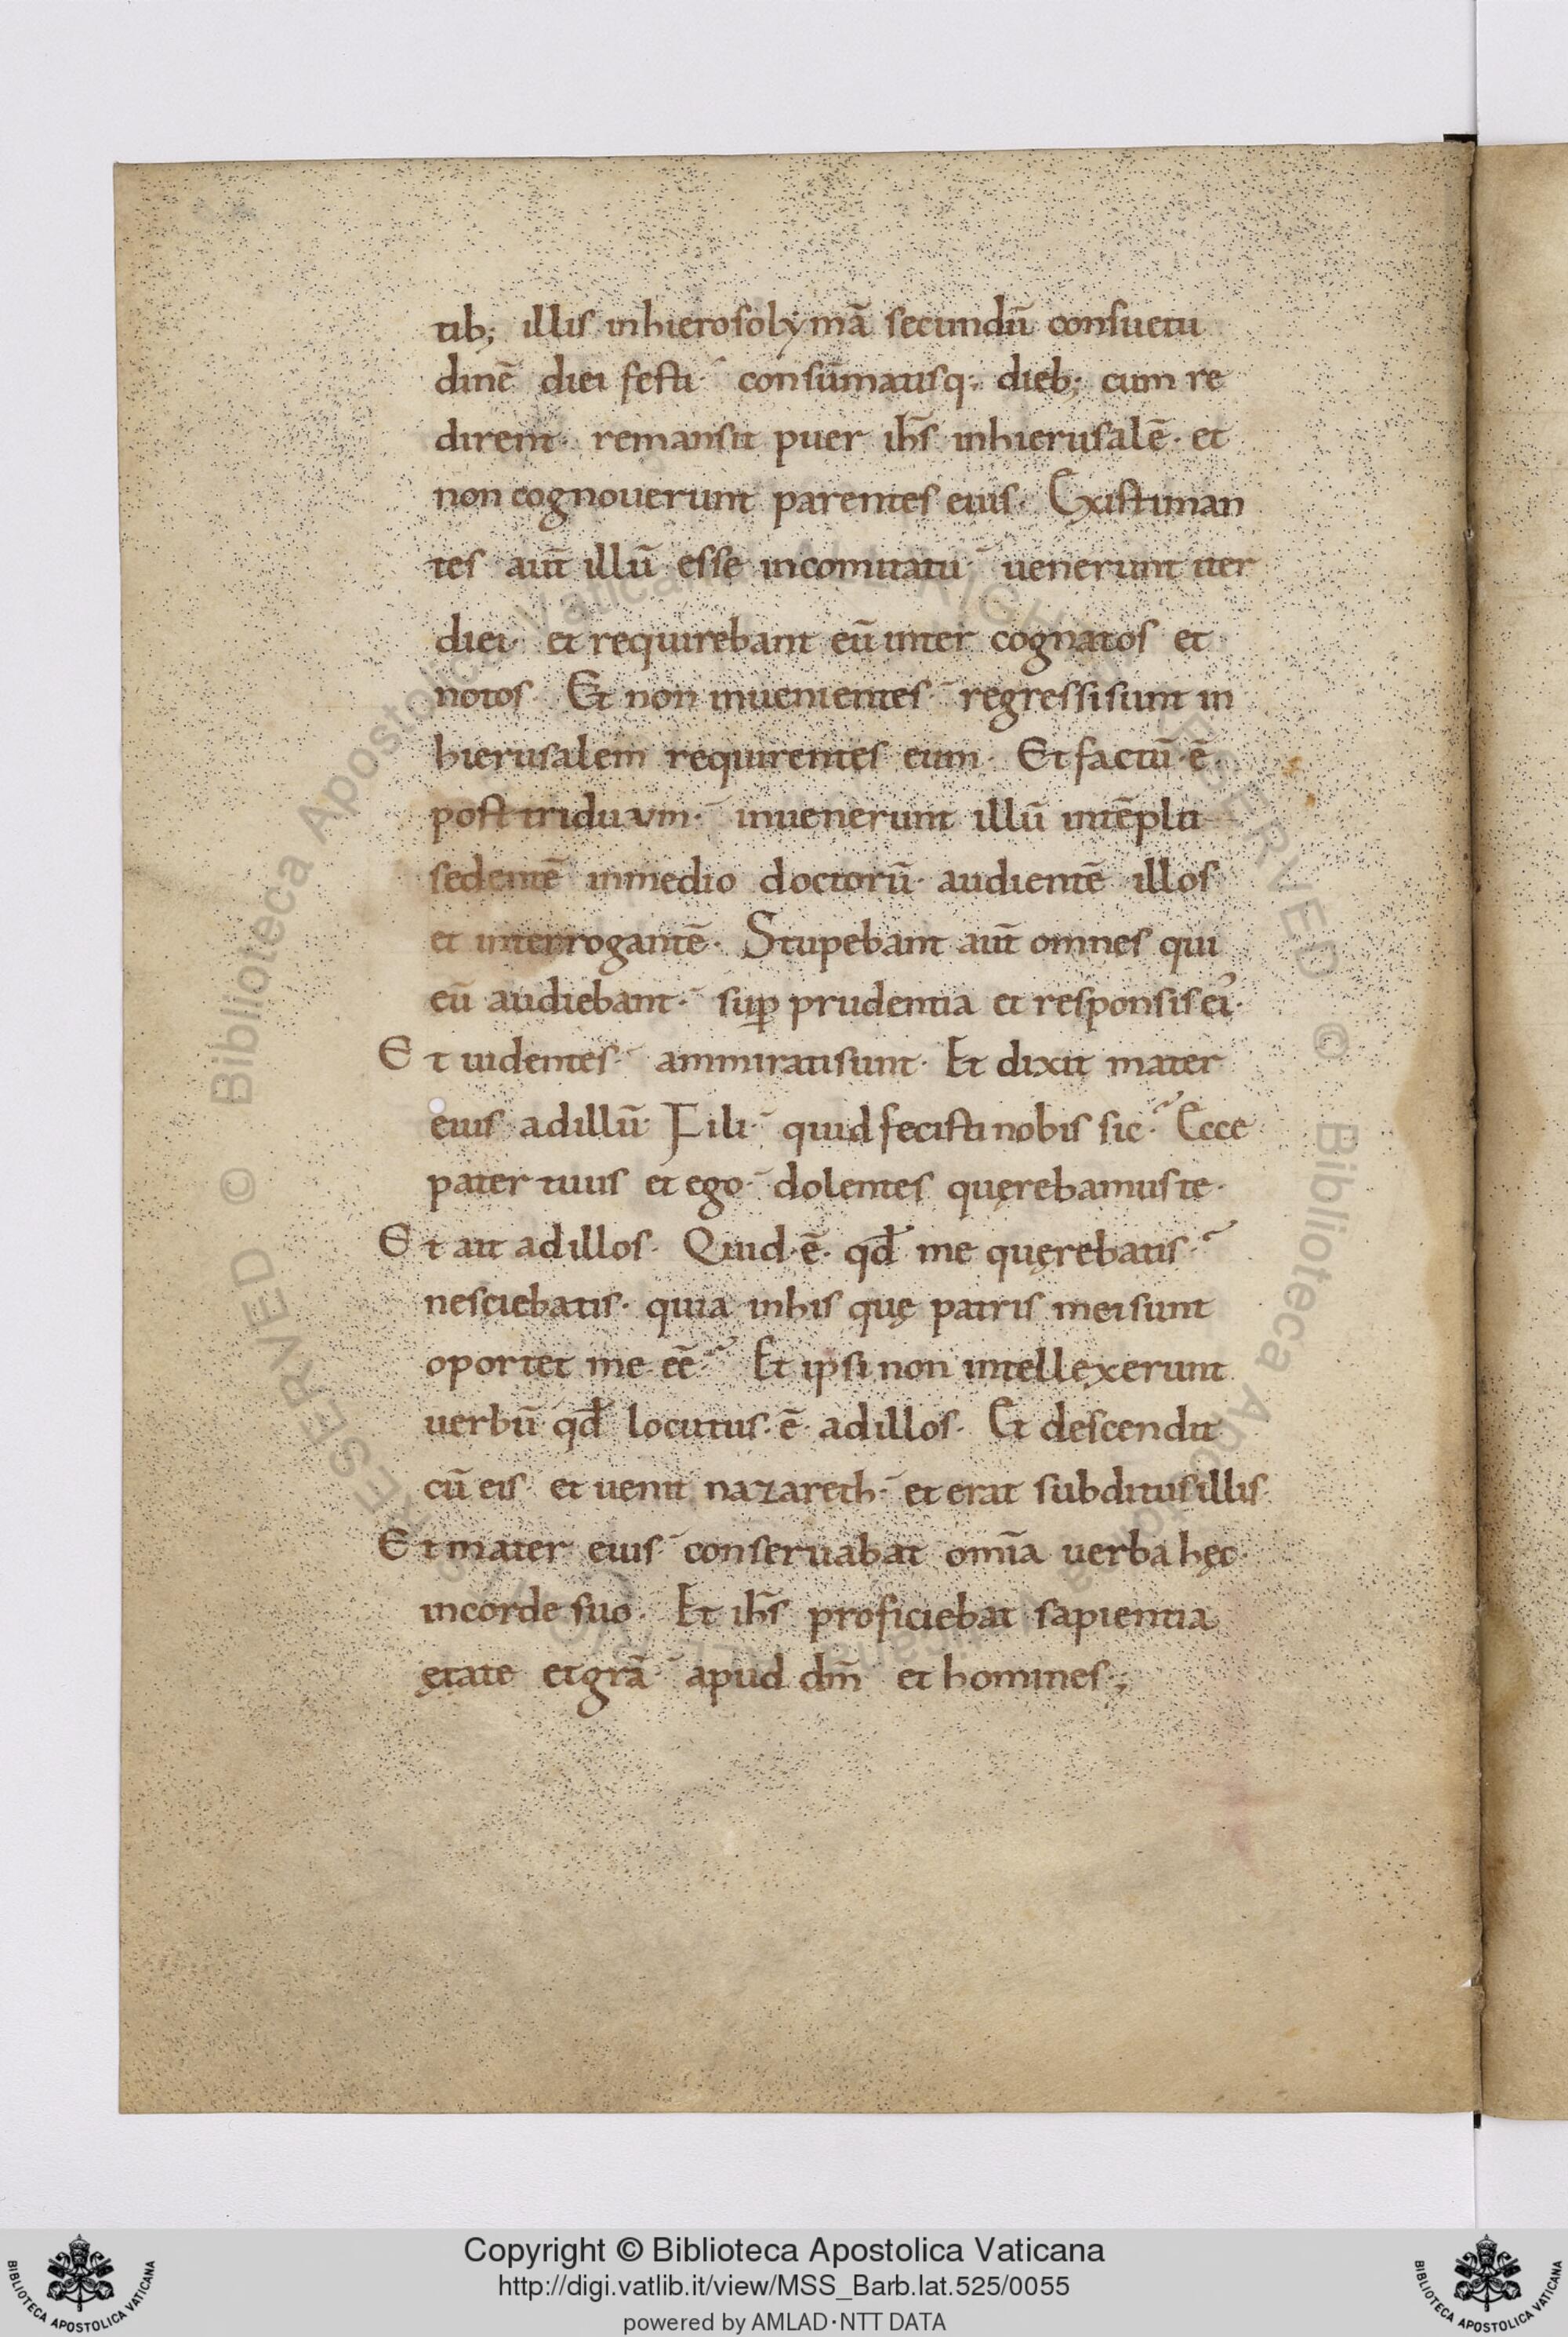 tib; illis inhierosolymā secundū consuetu
dinē diei festi· consūmatisq; dieb; cum re
dirent· remansit puer ih̄s inhierusalē· et
non cognouerunt parentes eius· Existiman
tes aut̄ illū esse incomitatu· uenerunt iter
diei· et requirebant eū inter cognatos et
notos· Et non inuenientes· regressi sunt in
hierusalem requirentes eum· Et factū·ē·
post triduum· inuenerunt illū intēplo
sedentē inmedio doctorū· audientē illos
et interrogantē· Stupebant aut̄ omnes qui
eū audiebant· suꝑ prudentia et responsis ei᾿·
Et uidentes· ammirati sunt· Et dixit mater
eius adillū· Fili· quid fecisti nobis sic·? Ecce
pater tuus et ego· dolentes quęrebamus te·
Et ait adillos· Quid·ē· qđ me quęrebatis·?
nesciebatis· quia inhis quę patris mei sunt
oportet me eē·? Et ipsi non intellexerunt
uerbū qđ locutus·ē· adillos· Et descendit
cū eis· et uenit nazareth· et erat subditus illis·
Et mater eius· conseruabat om̄ia uerba hęc·
incorde suo· Et ih̄s proficiebat sapientia
ętate et gr̄a· apud dm̄ et homines·;
© Biblioteca Apostolica Vaticana ALL RIGHTS RESERVED
© Biblioteca Apostolica Vaticana ALL RIGHTS RESERVED
Copyright © Biblioteca Apostolica Vaticana
http://digi.vatlib.it/view/MSS_Barb.lat.525/0055
powered by AMLAD·NTT DATA
BIBLIOTECA APOSTOLICA VATICANA
BIBLIOTECA APOSTOLICA VATICANA